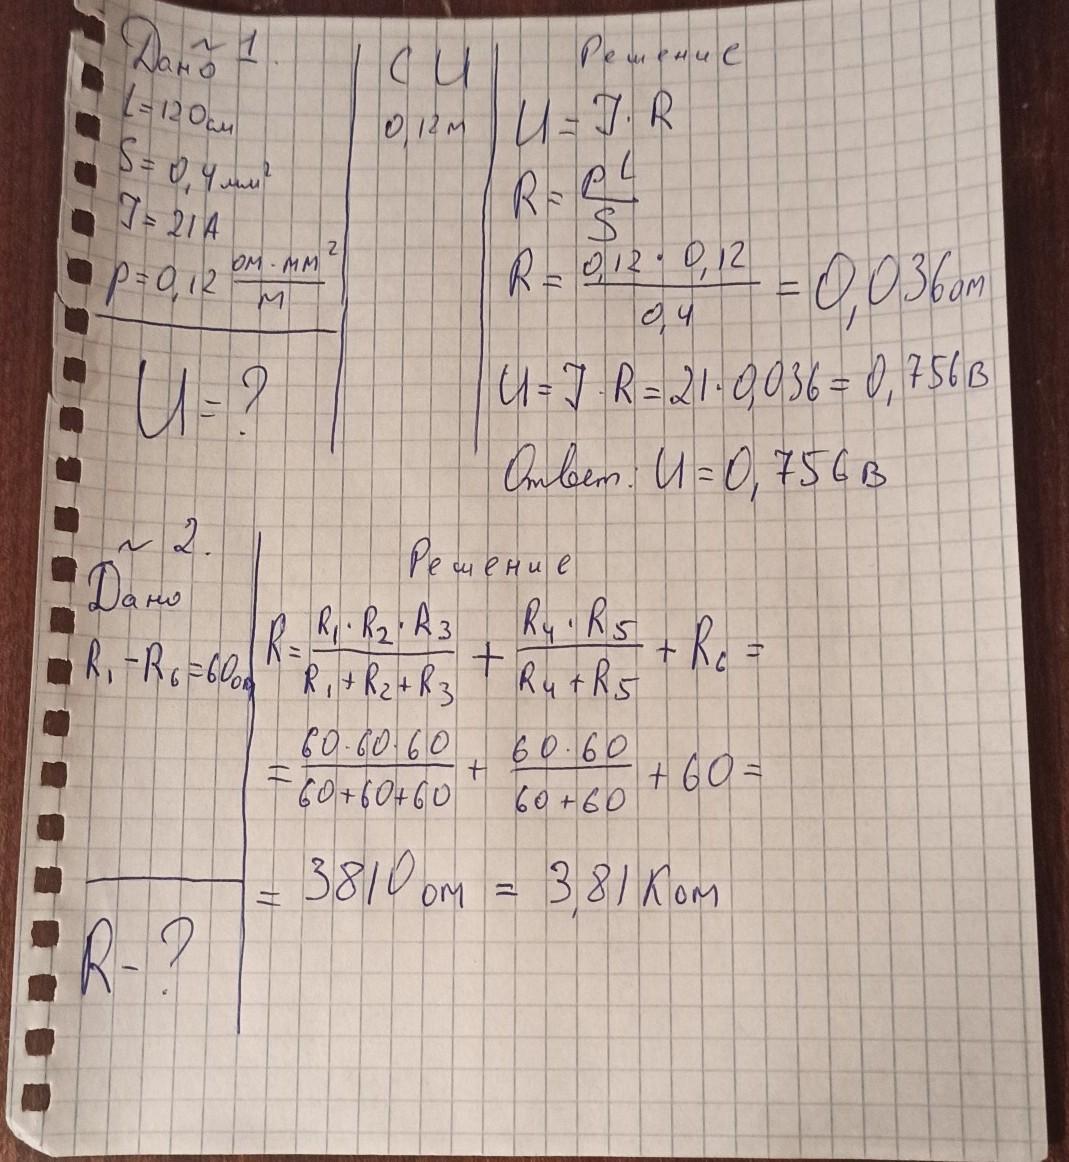 ~ 1.
Дано
L = 120см
S = 0,4 мм²
J = 21А
ρ = 0,12 ом·мм²/м
U = ?
СИ
0,12м
Решение
U = J · R
R = ρL/S
R = 0,12 · 0,12/0,4 = 0,036ом
U = J · R = 21 · 0,036 = 0,756В
Ответ: U = 0,756В
~ 2.
Дано
R₁ - R₆ = 60ом
R - ?
Решение
R = R₁ · R₂ · R₃/R₁ + R₂ + R₃ + R₄ · R₅/R₄ + R₅ + R₆ =
= 60 · 60 · 60/60 + 60 + 60 + 60 · 60/60 + 60 + 60 =
= 3810 ом = 3,81 Ком